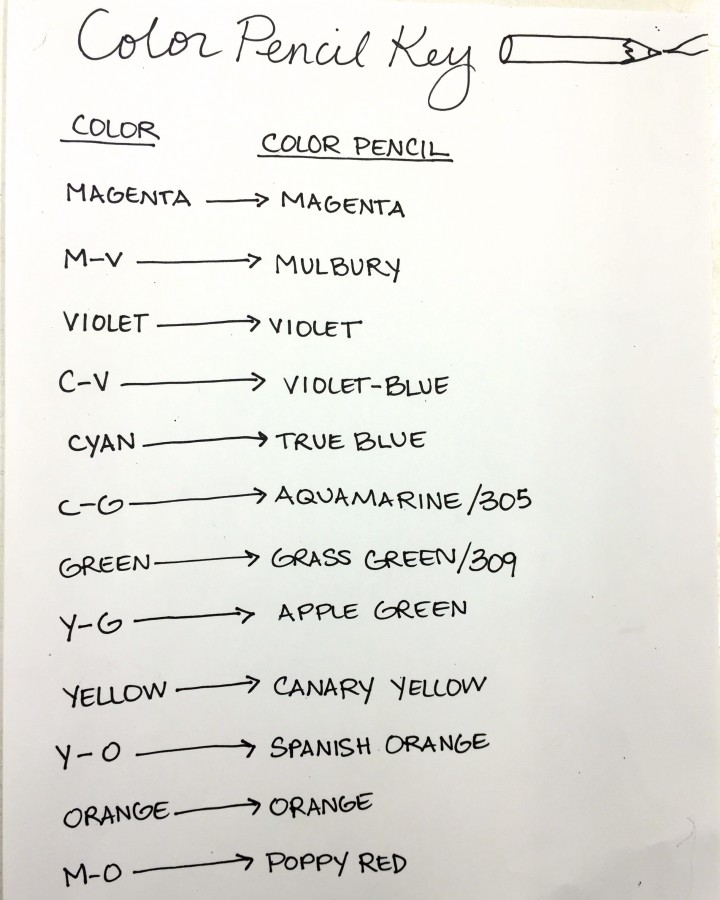 Color Pencil Key
COLOR COLOR PENCIL
MAGENTA → MAGENTA
M-V → MULBURY
VIOLET → VIOLET
C-V → VIOLET-BLUE
CYAN → TRUE BLUE
C-G → AQUAMARINE/305
GREEN → GRASS GREEN/309
Y-G → APPLE GREEN
YELLOW → CANARY YELLOW
Y-O → SPANISH ORANGE
ORANGE → ORANGE
M-O → POPPY RED